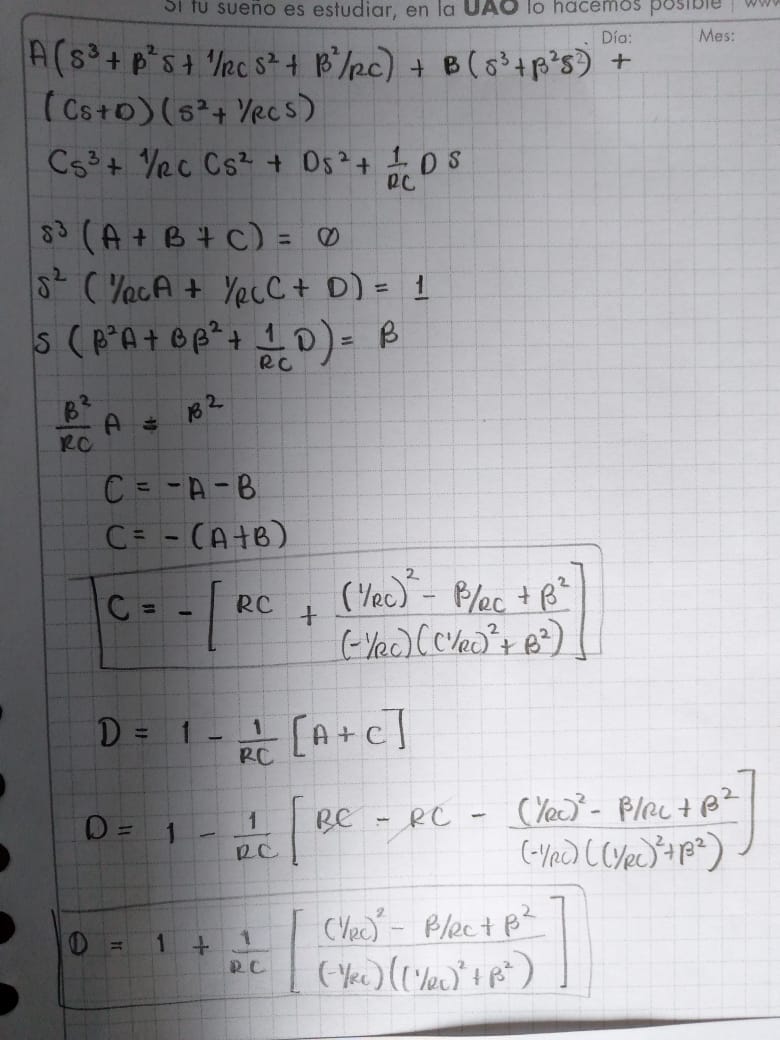 Si tu sueño es estudiar, en la UAO lo hacemos posible | www
Día: Mes:
A(s³ + β²s + 1/RC s² + β²/RC) + B(s³+β²s²) +
(Cs+D)(s² + 1/RC s)
Cs³ + 1/RC Cs² + Ds² + 1/RC D s
s³ (A + B + C) = 0
s² (1/RC A + 1/RC C + D) = 1
s (β²A + Bβ² + 1/RC D) = β
β²/RC A = β²
C = -A - B
C = - (A+B)
C = - [ RC + ((1/RC)² - β/RC + β²)/((-1/RC)((1/RC)² + β²)) ]
D = 1 - 1/RC [A + C]
D = 1 - 1/RC [ RC - RC - ((1/RC)² - β/RC + β²)/((-1/RC)((1/RC)²+β²)) ]
D = 1 + 1/RC [ ((1/RC)² - β/RC + β²)/((-1/RC)((1/RC)² + β²)) ]